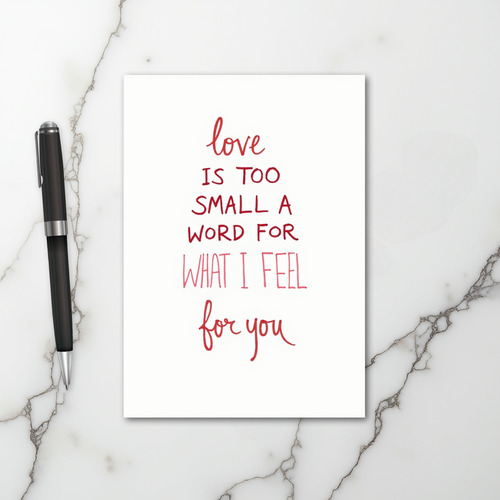 love
IS TOO
SMALL A
WORD FOR
WHAT I FEEL
for you